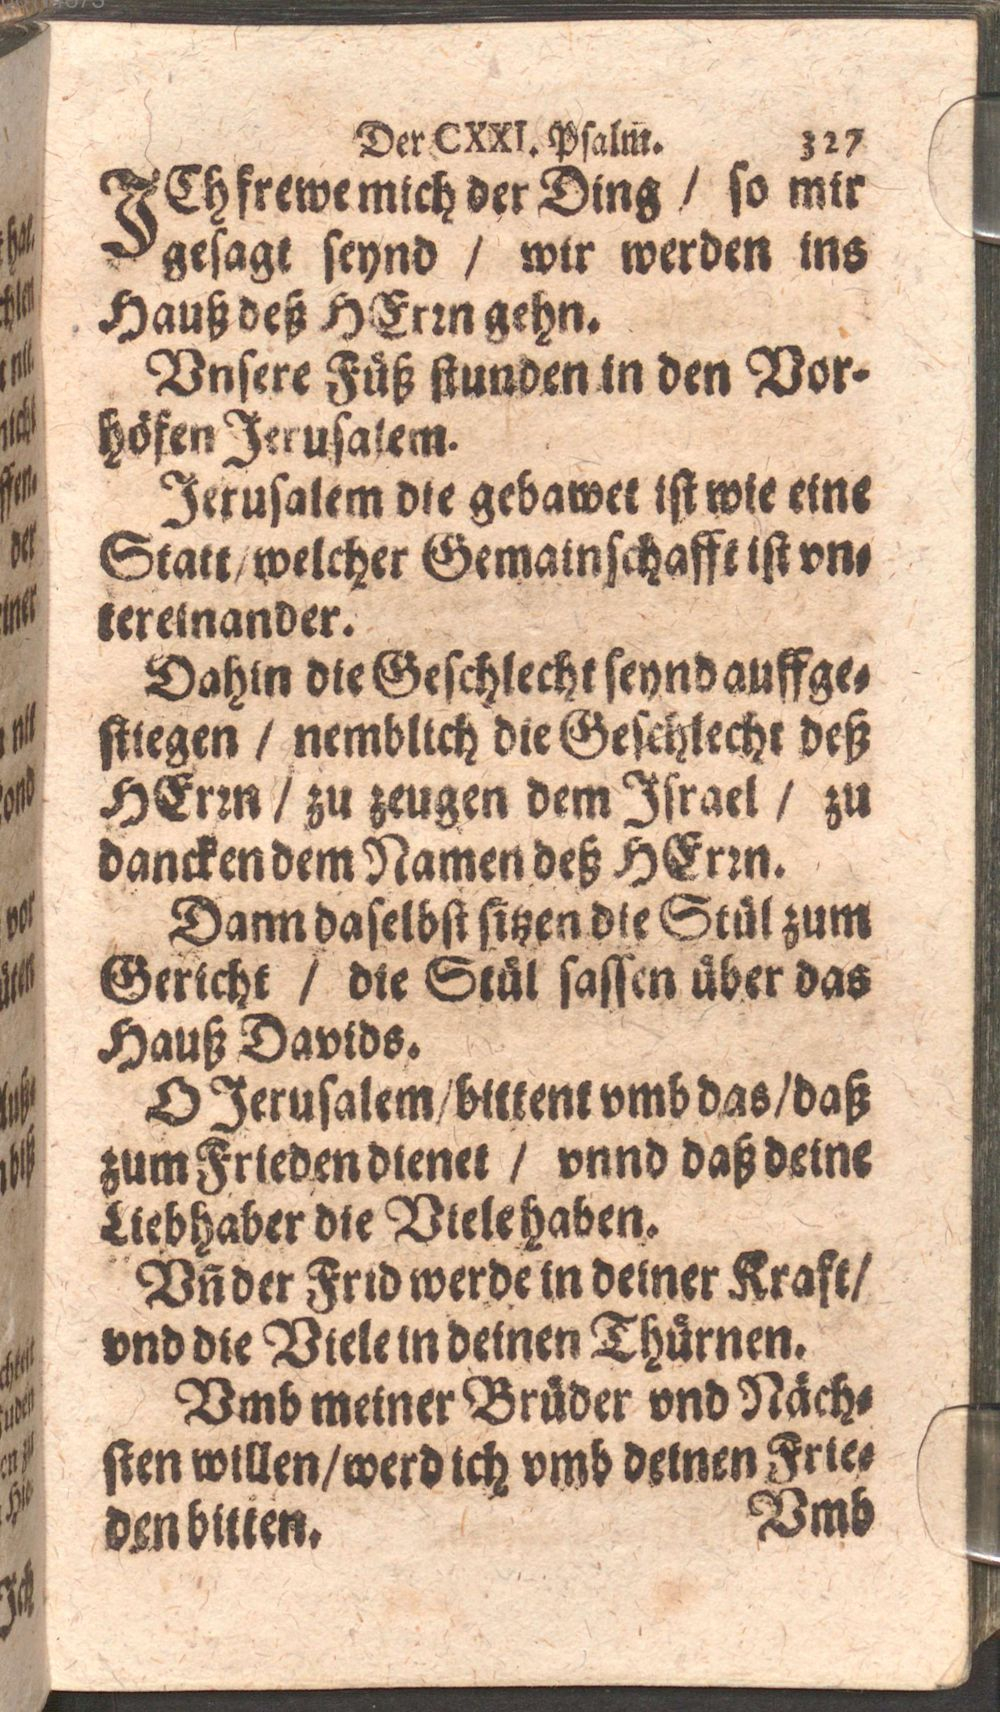 Der CXXI. Psalm̄. 327
ICh frewe mich der Ding / so mir
gesagt seynd / wir werden ins
Hauß deß HErꝛn gehn.
Vnsere Fuͤß stunden in den Vor-
hoͤfen Jerusalem.
Jerusalem die gebawet ist wie eine
Statt / welcher Gemainschafft ist vn-
tereinander.
Dahin die Geschlecht seynd auffge-
stiegen / nemblich die Geschlecht deß
HErꝛn / zu zeugen dem Israel / zu
dancken dem Namen deß HErꝛn.
Dann daselbst sitzen die Stuͤl zum
Gericht / die Stuͤl sassen uͤber das
Hauß Davids.
O Jerusalem / bittent vmb das / daß
zum Frieden dienet / vnnd daß deine
Liebhaber die Viele haben.
Vn̄ der Frid werde in deiner Kraft /
vnd die Viele in deinen Thuͤrnen.
Vmb meiner Bruͤder vnd Naͤch-
sten willen / werd ich vmb deinen Frie-
den bitten.
Vmb